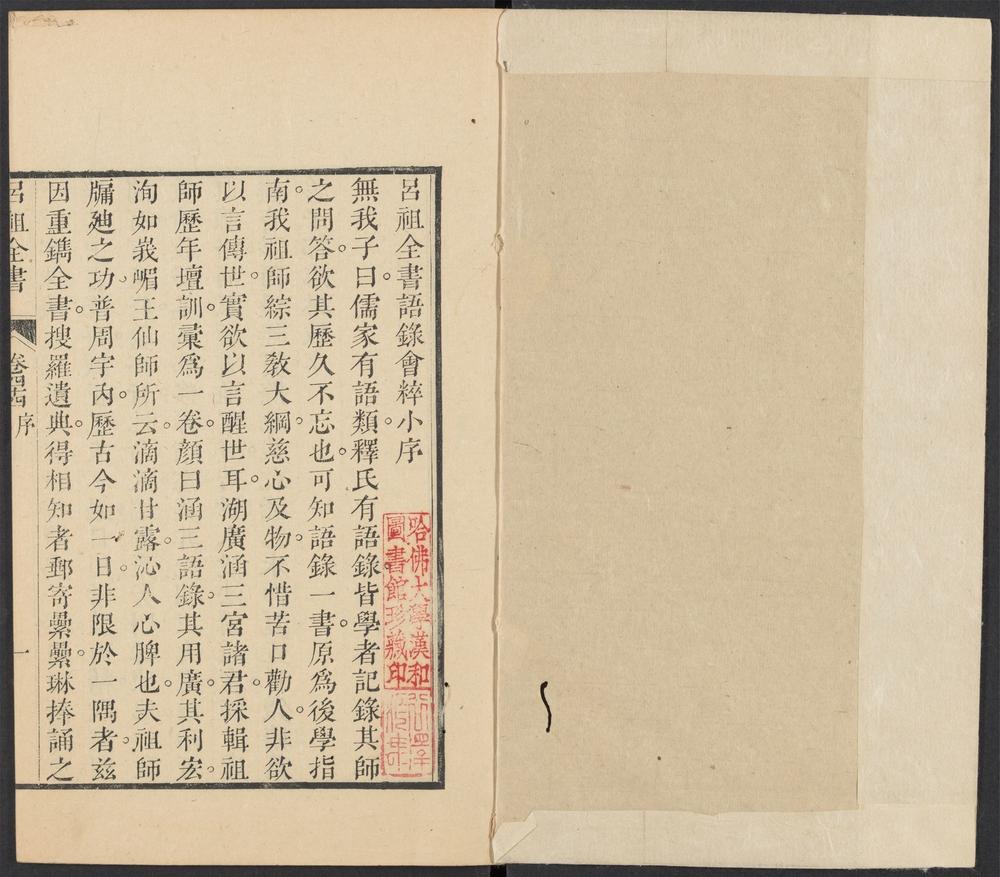 呂祖全書語錄會粹小序
無我子曰儒家有語類釋氏有語錄皆學者記錄其師
之問答欲其歷久不忘也可知語錄一書原爲後學指
南我祖師綜三教大綱慈心及物不惜苦口勸人非欲
以言傳世實欲以言醒世耳湖廣涵三宮諸君採輯祖
師歷年壇訓彙爲一卷顏曰涵三語錄其用廣其利宏
洵如峩嵋王仙師所云滴滴甘露沁人心脾也夫祖師
牖廸之功普周宇內歷古今如一日非限於一隅者茲
因重鐫全書搜羅遺典得相知者郵寄纍纍琳捧誦之
呂祖全書
卷 序
一
哈佛大學漢和
圖書館珍藏印